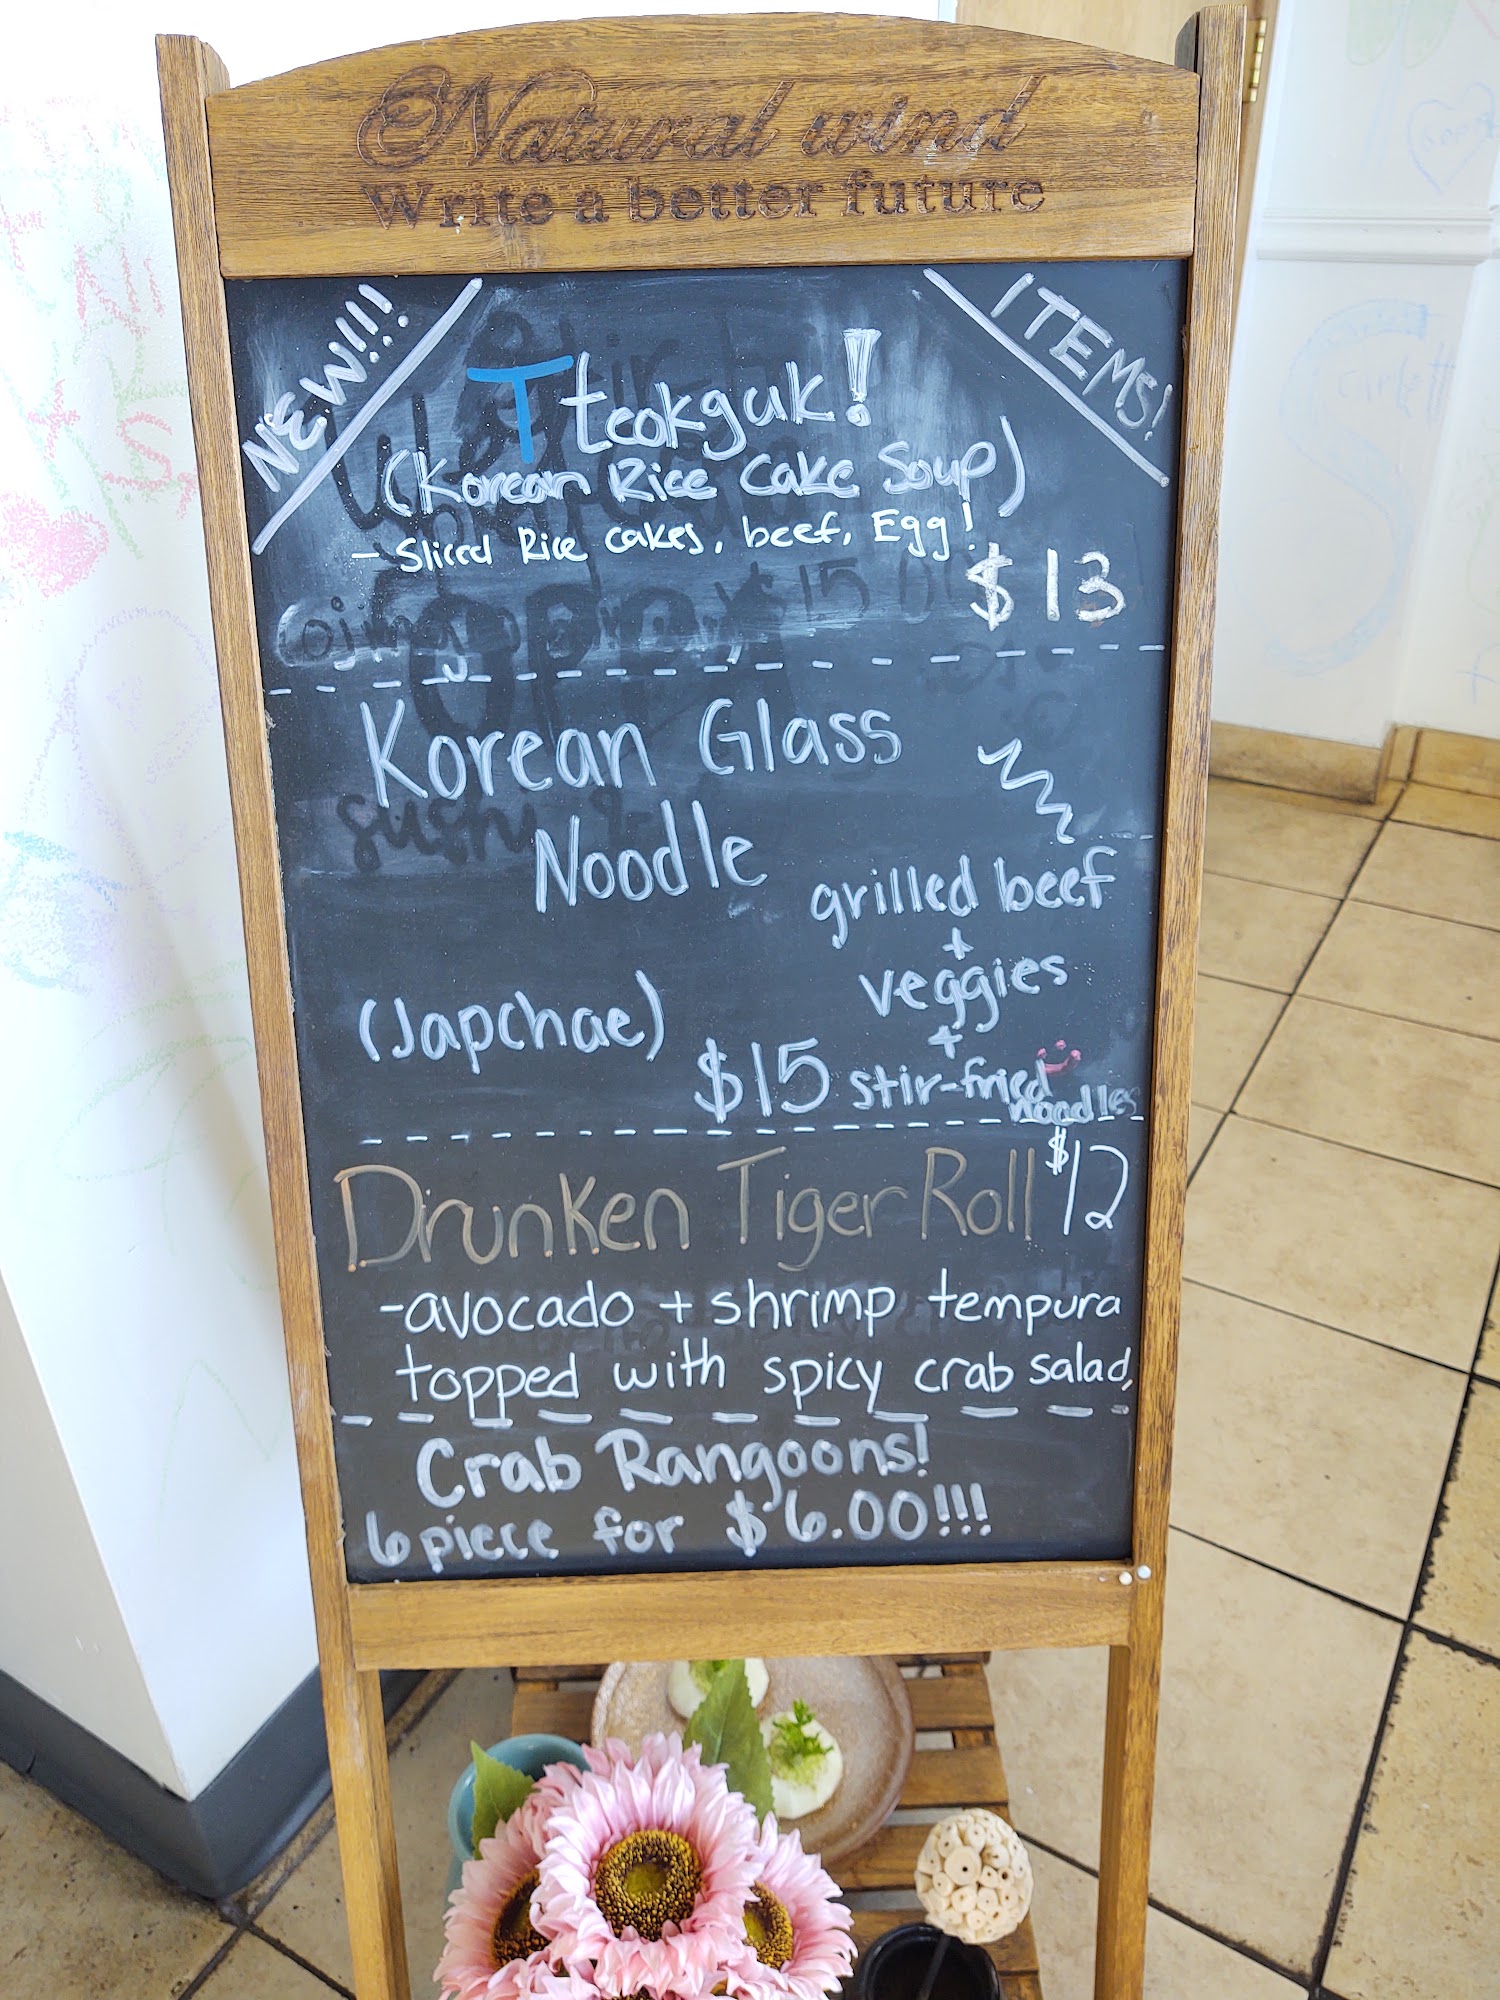 Natural wind
Write a better future
NEW!!!
ITEMS!
Tteokguk!
(Korean Rice Cake Soup)
- Sliced Rice cakes, beef, Egg!
$13
Korean Glass
Noodle
grilled beef
+
veggies
+
stir-fried
noodles
(Japchae)
$15
Drunken Tiger Roll $12
-avocado + shrimp tempura
topped with spicy crab salad,
Crab Rangoons!
6 piece for $6.00!!!